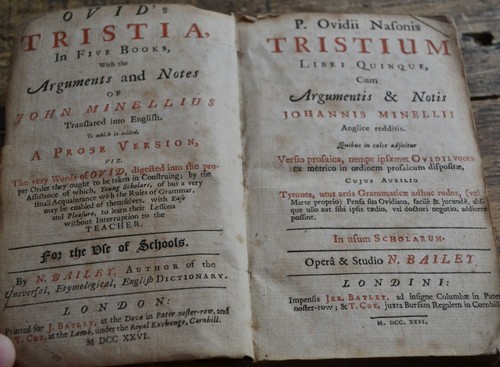 OVID's
TRISTIA,
In Five Books,
With the
Arguments and Notes
OF
JOHN MINELLIUS
Translated into English.
To which is added,
A PROSE VERSION,
VIZ.
The very Words of OVID, digested into the pro-
per Order they ought to be taken in Construing; by the
Assistance of which, Young Scholars, of but a very
small Acquaintance with the Rules of Grammar,
may be enabled of themselves, with Ease
and Pleasure, to learn their Lessons
without Interruption to the
TEACHER.
For the Use of Schools.
By N. BAILEY, AUTHOR of the
Universal, Etymological, English DICTIONARY.
LONDON:
Printed for J. BATLEY, at the Dove in Pater noster-row, and
T. COX, at the Lamb, under the Royal Exchange, Cornhill.
M DCC XXVI.
P. Ovidii Nasonis
TRISTIUM
LIBRI QUINQUE,
Cum
Argumentis & Notis
JOHANNIS MINELLII
Anglice redditis.
Quibus in calce adjicitur
Versio prosaica, nempe ipsæmet OVIDII voces
ex metrico in ordinem prosaicum dispositæ,
CUJUS AUXILIO
Tyrones, utut artis Grammaticæ adhuc rudes, (vel
Marte proprio) Pensa sua Ovidiana, facilè & jucundè, abs-
que ullo aut sibi ipsis tædio, vel doctori negotio, addiscere
possint.
In usum SCHOLARUM.
Operâ & Studio N. BAILEY.
LONDINI:
Impensis JER. BATLEY, ad Insigne Columbæ in Pater
noster-row; & T. COX, juxta Bursam Regalem in Cornhill
M. DCC. XXVI.